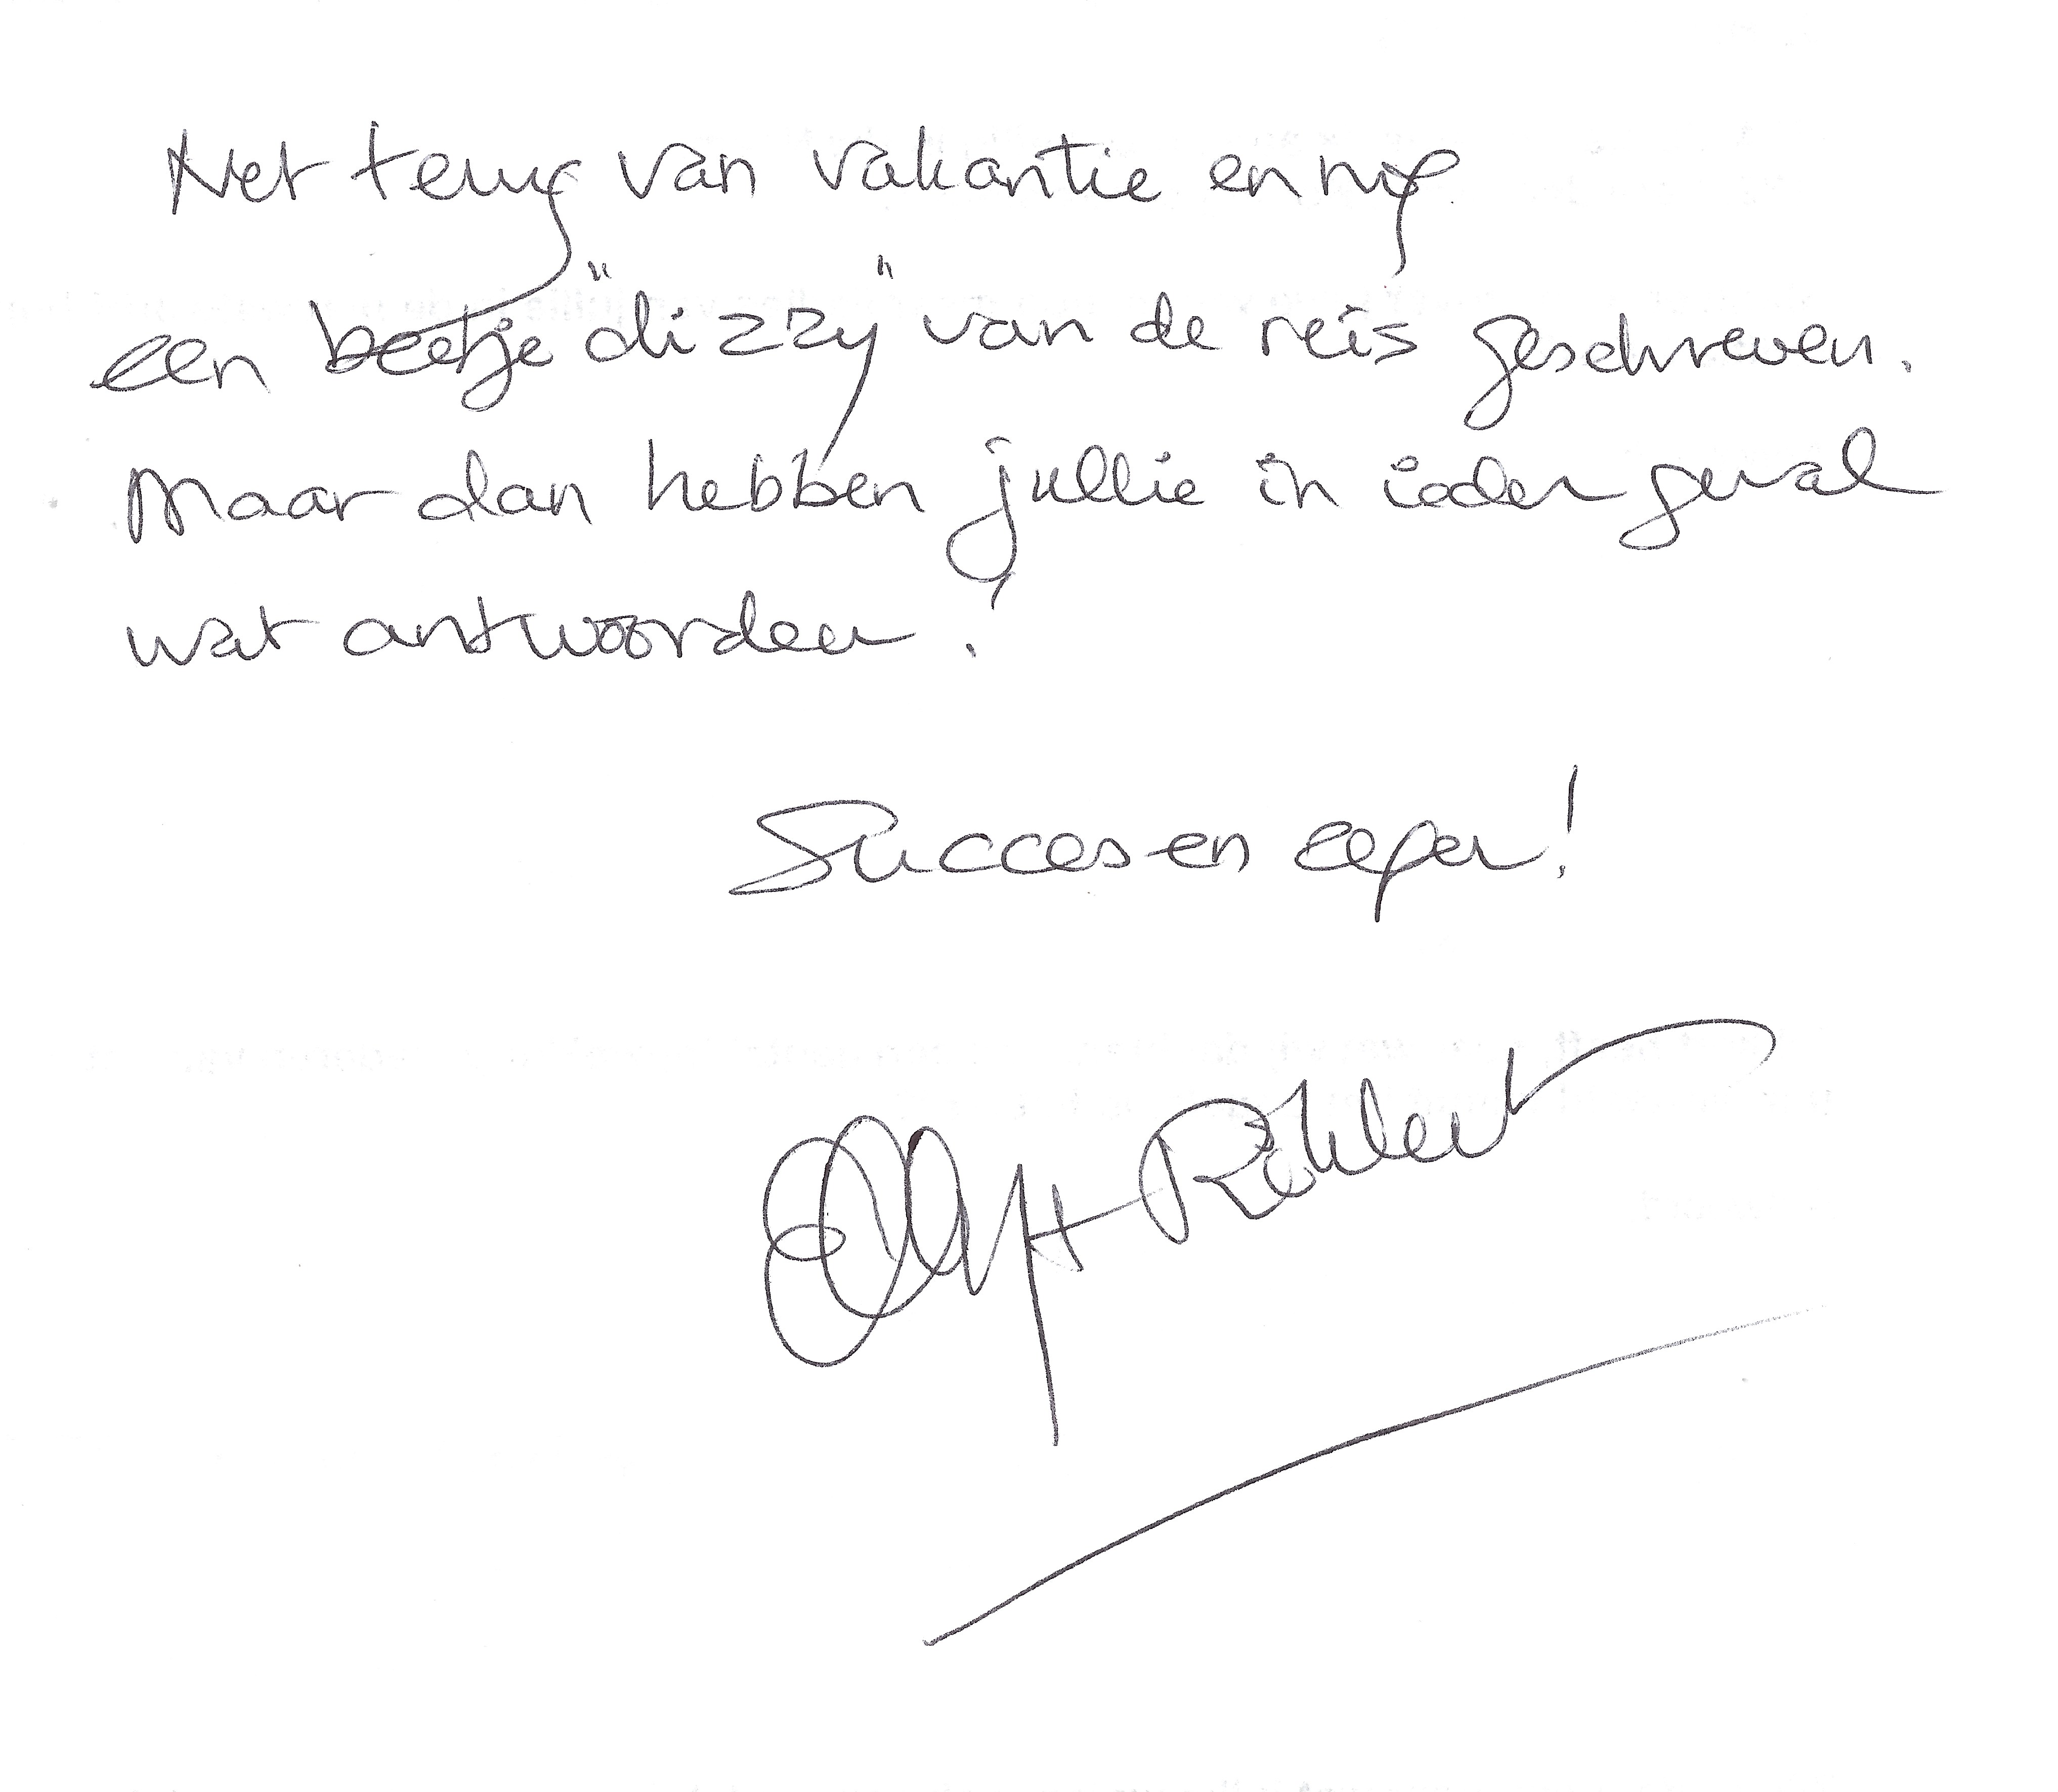 Net terug van vakantie en nog
een beetje "dizzy" van de reis geschreven.
Maar dan hebben jullie in ieder geval
wat antwoorden!
Succes en